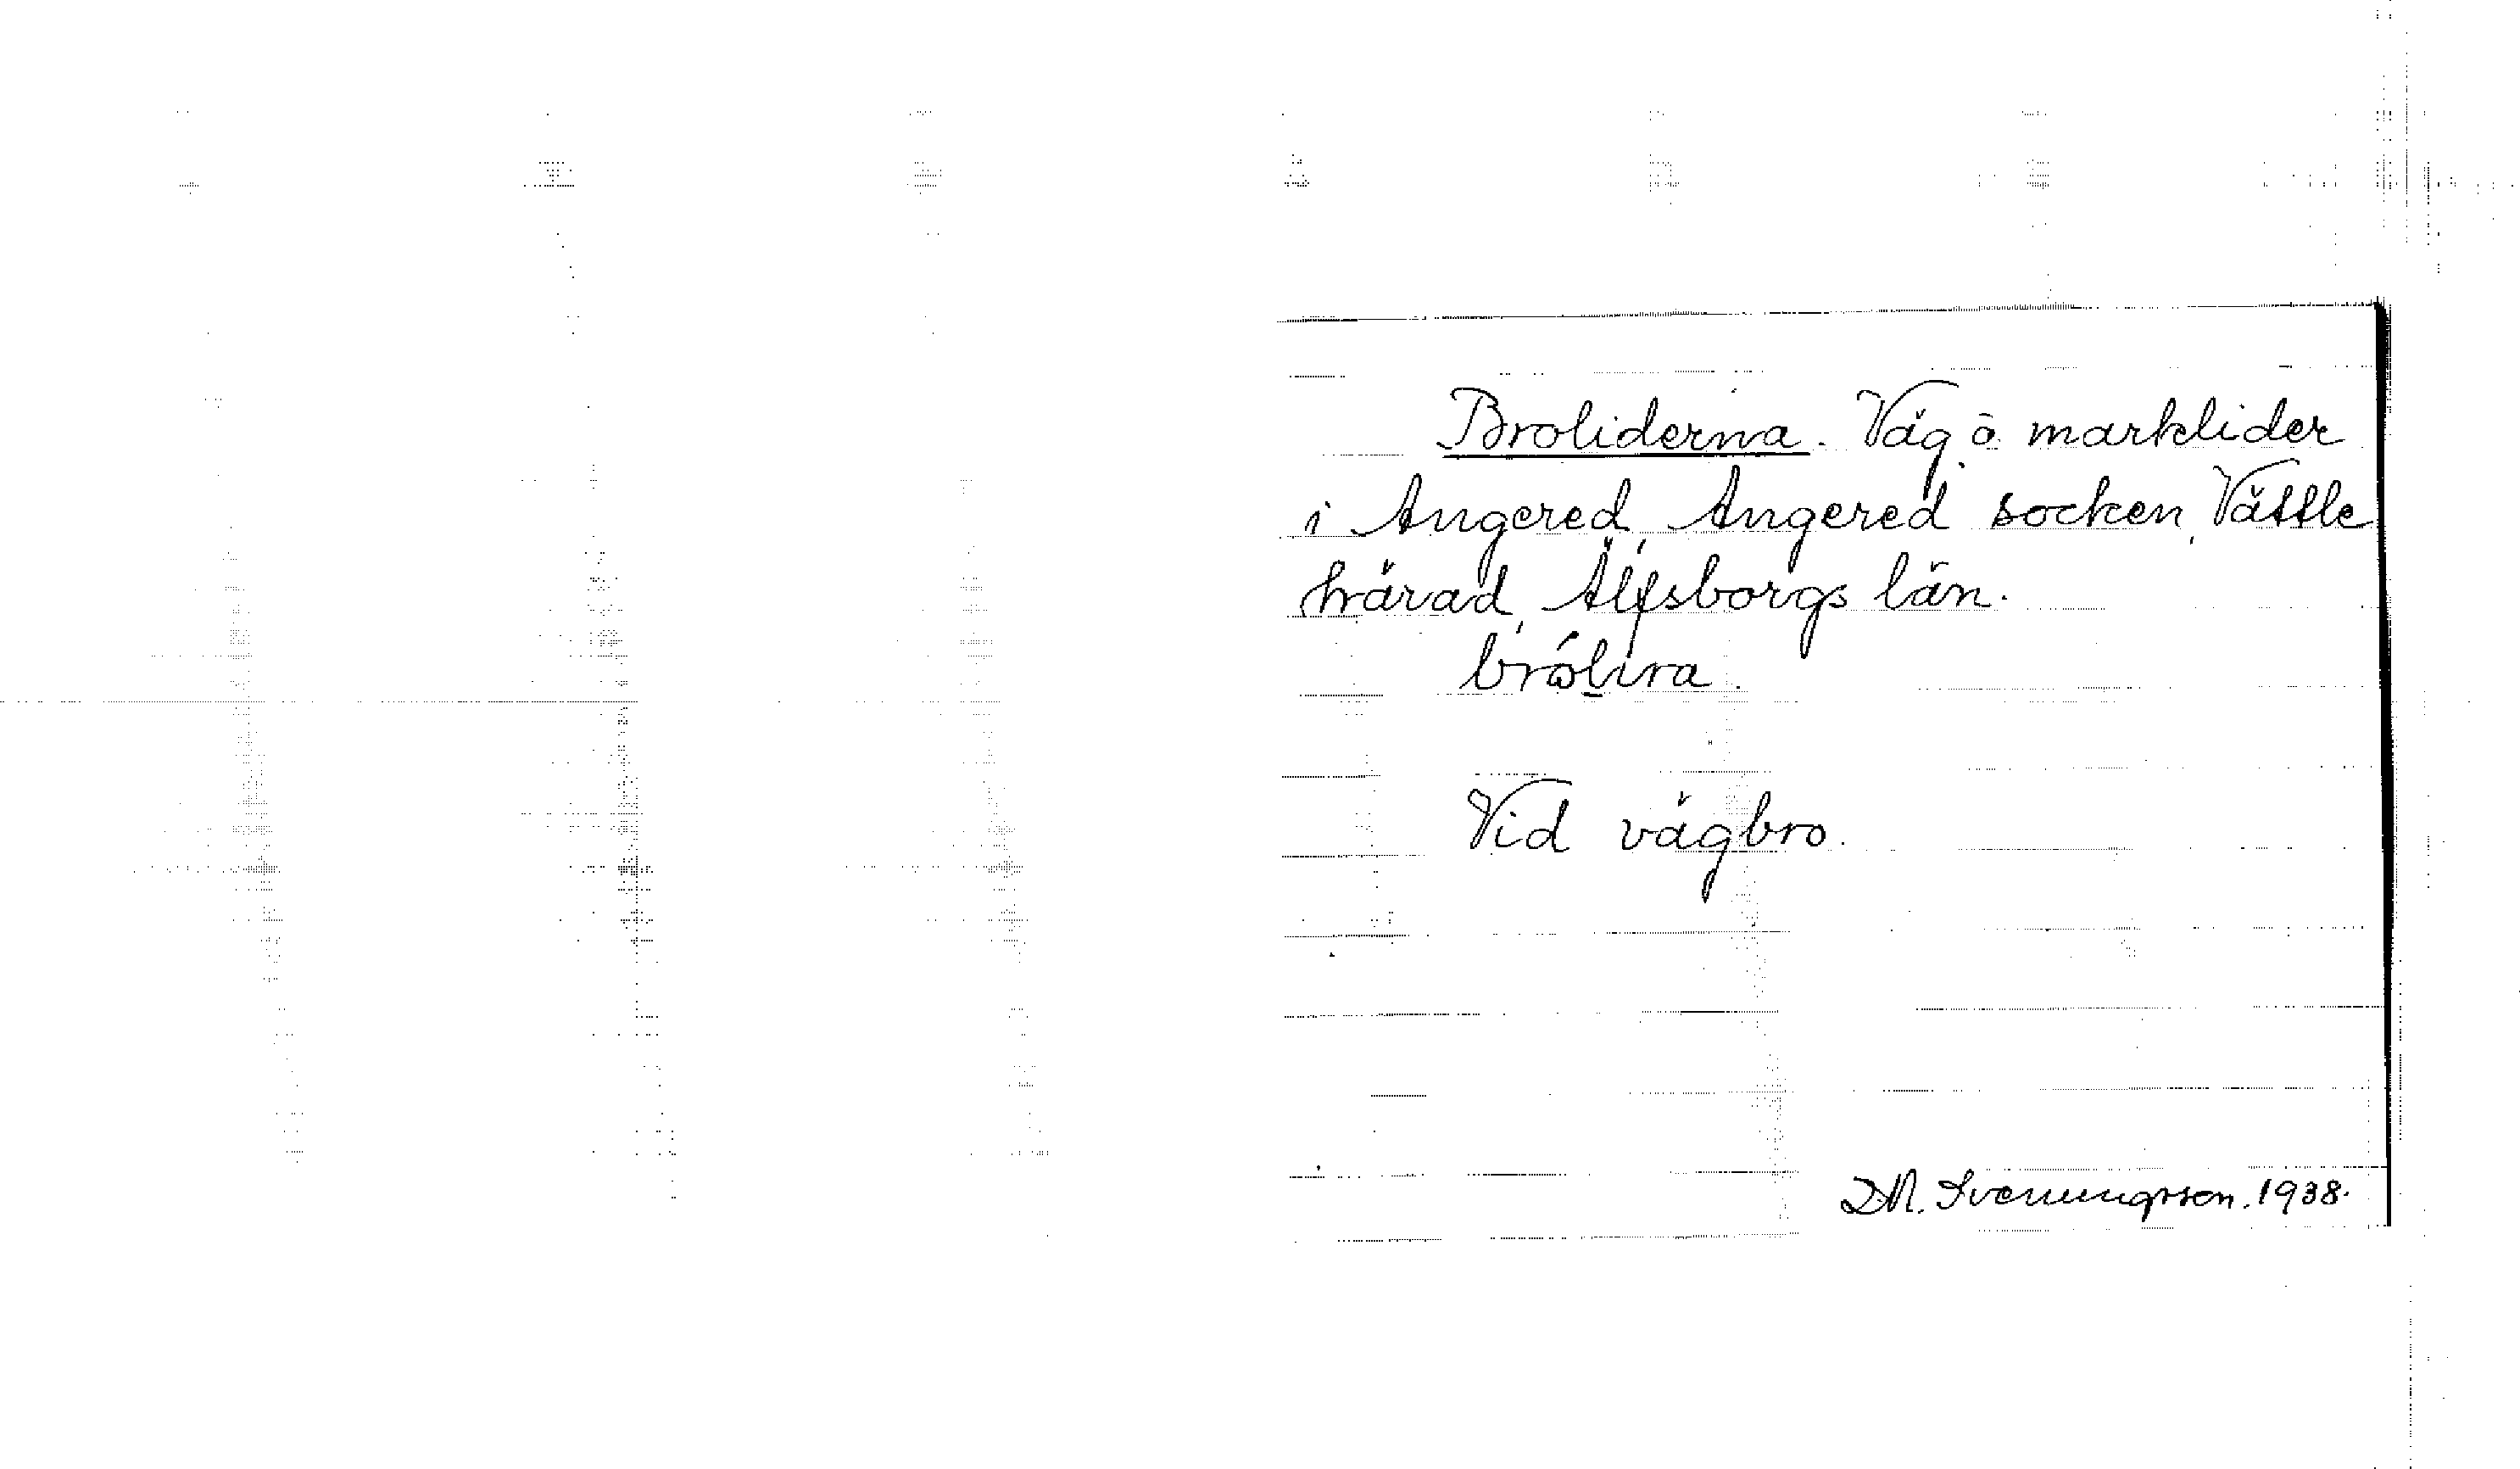 Broliderna. Väg o. marklider
i Angered, Angered socken, Vättle
härad, Älfsborgs län.
brólira.
Vid vägbro.
D.M. Svenungsson. 1938.